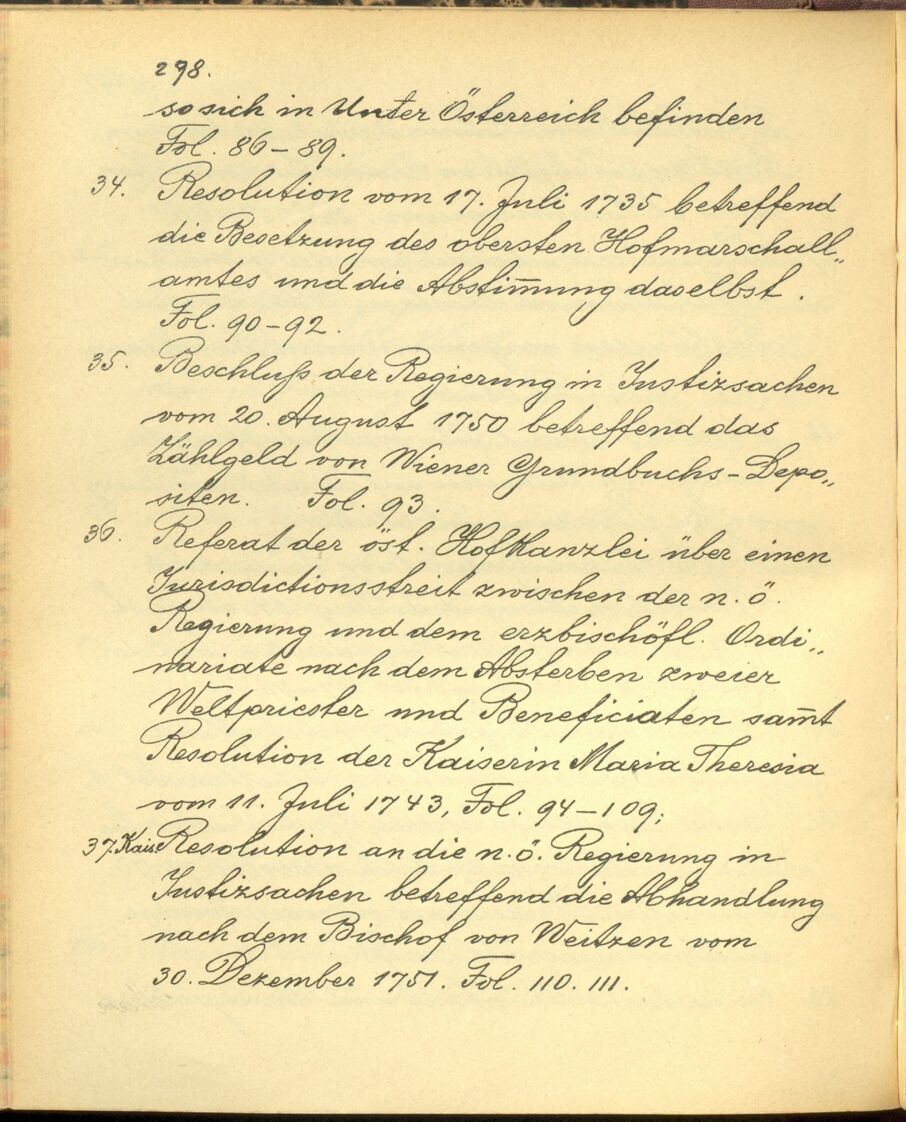 298.
so sich in Unter Österreich befinden
Fol. 86 – 89.
34. Resolution vom 17. Juli 1735 betreffend
die Besetzung des obersten Hofmarschall„
amtes und die Abstim̄ung daselbst.
Fol. 90 – 92.
35. Beschluß der Regierung in Justizsachen
vom 20. August 1750 betreffend das
Zählgeld von Wiener Grundbuchs – Depo„
siten. Fol. 93.
36. Referat der öst. Hofkanzlei über einen
Jurisdictionsstreit zwischen der n. ö.
Regierung und dem erzbischöfl. Ordi„
nariate nach dem Absterben zweier
Weltpriester und Beneficiaten sam̄t
Resolution der Kaiserin Maria Theresia
vom 11. Juli 1743, Fol. 94 – 109;
37. Kais. Resolution an die n. ö. Regierung in
Justizsachen betreffend die Abhandlung
nach dem Bischof von Weitzen vom
30. Dezember 1751. Fol. 110. 111.